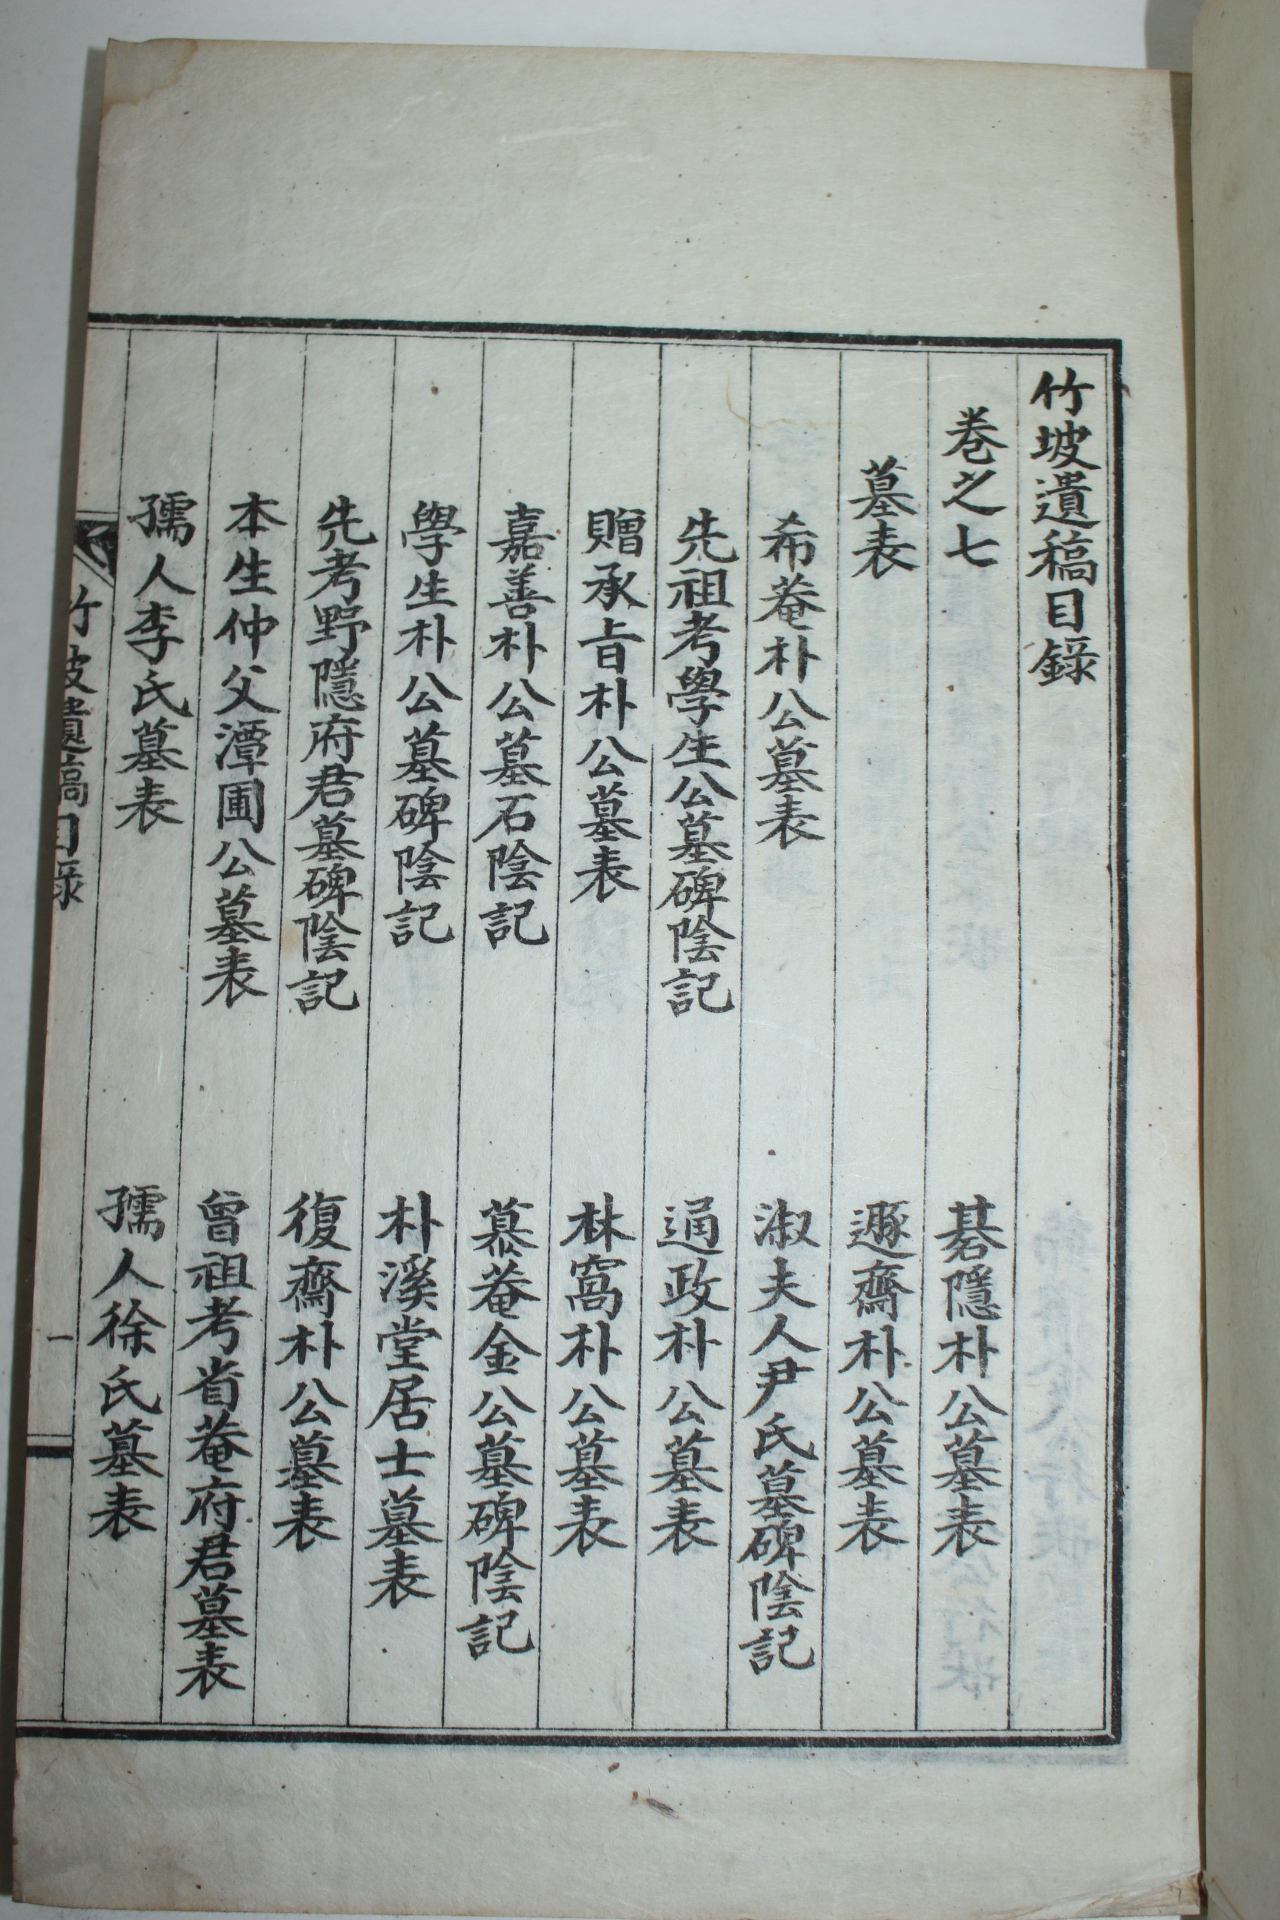 竹坡遺稿目錄
卷之七
碁隱朴公墓表
墓表
遯齋朴公墓表
希菴朴公墓表
淑夫人尹氏墓碑陰記
先祖考學生公墓碑陰記
通政朴公墓表
贈承旨朴公墓表
林窩朴公墓表
嘉善朴公墓石陰記
慕菴金公墓碑陰記
學生朴公墓碑陰記
朴溪堂居士墓表
先考野隱府君墓碑陰記
復齋朴公墓表
本生仲父潭圃公墓表
曾祖考省菴府君墓表
孺人李氏墓表
孺人徐氏墓表
竹坡遺稿目錄
一